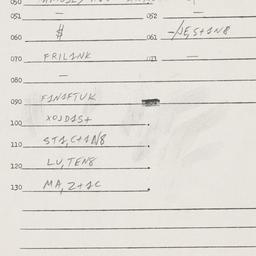 050
051 — 052 —
$ 061 -/JE,S+1N8
070 FRILANK 071 —
080 —
090 FANAFTUK
100 XOJDAS+
110 STA,C+AN8
120 LU,TEN8
130 MA,Z+AC